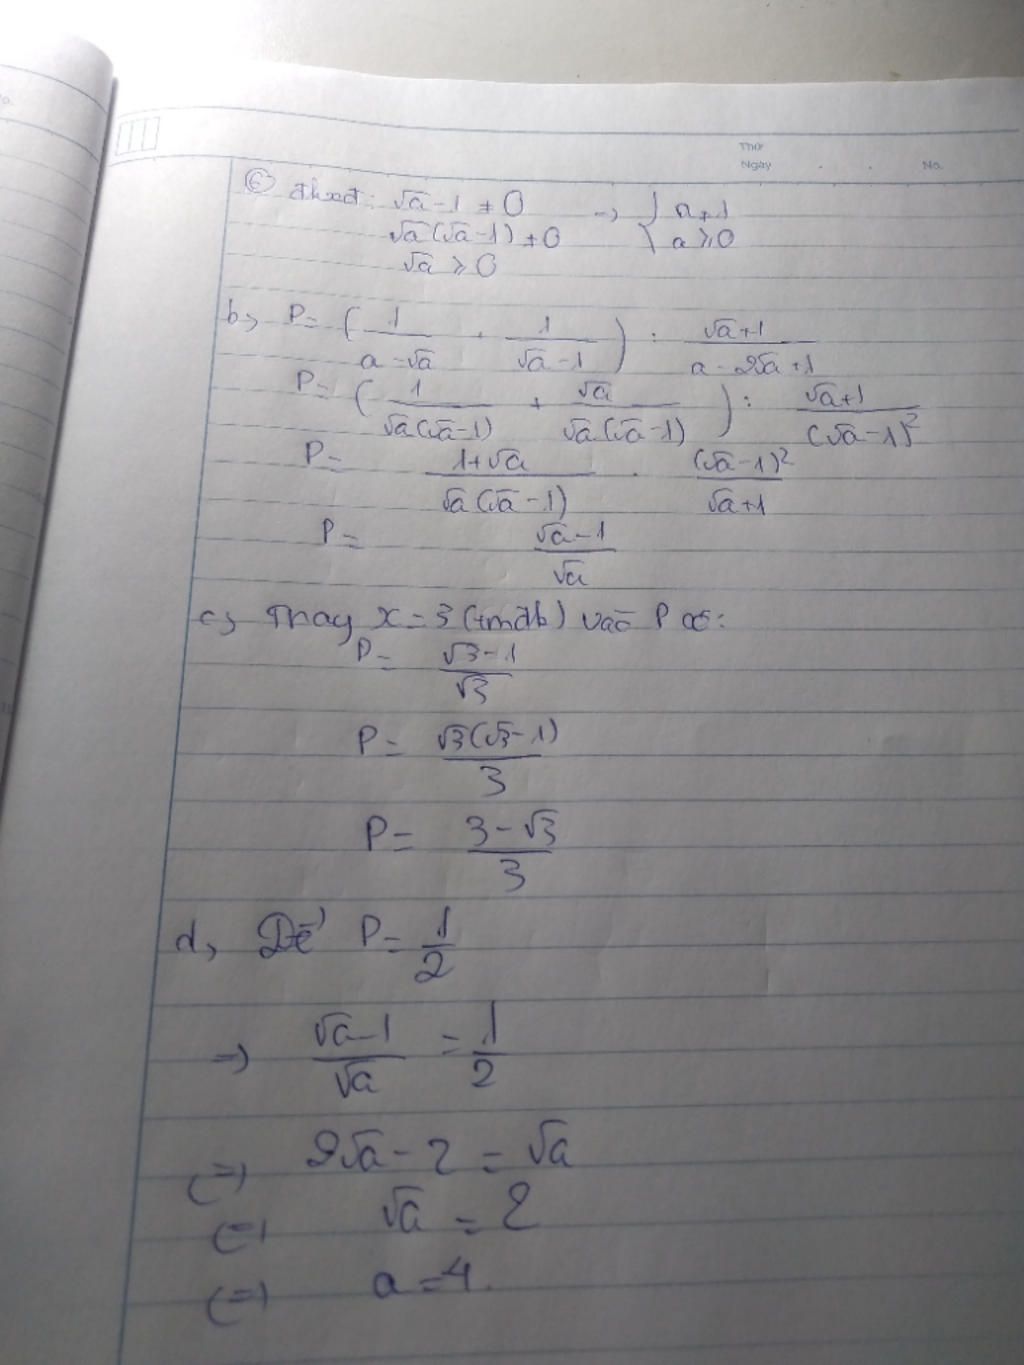 Thứ
Ngày . . No.
⑥ Đkxđ: √a-1 ≠ 0 => { a≠1
√a(√a-1) ≠ 0 a≥0
√a ≥ 0
b, P= (1/(a-√a) + 1/(√a-1)) : (√a+1)/(a-2√a+1)
P= (1/(√a(√a-1)) + √a/(√a(√a-1))) : (√a+1)/(√a-1)²
P= (1+√a)/(√a(√a-1)) . (√a-1)²/(√a+1)
P= (√a-1)/√a
c, Thay x=3 (tmđk) vào P có:
P= (√3-1)/√3
P= √3(√3-1)/3
P= (3-√3)/3
d, Để P= 1/2
=> (√a-1)/√a = 1/2
(=) 2√a-2 = √a
(=) √a = 2
(=) a=4.